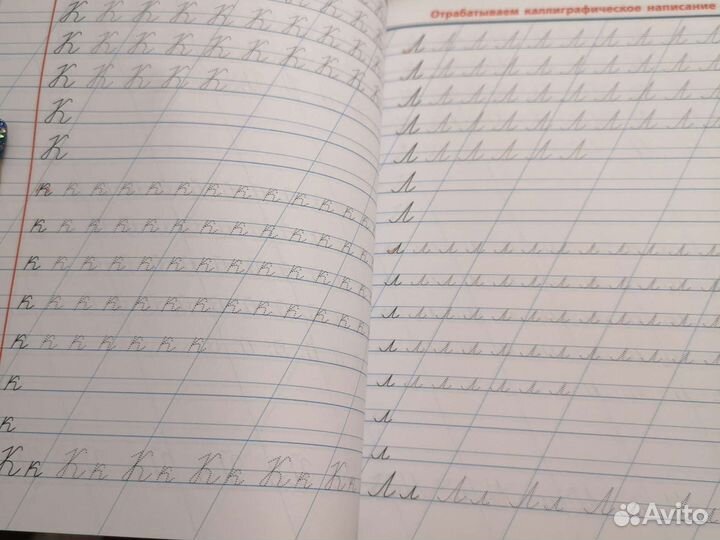 К К К К К К К К К
К К К К К К К К К К
К К К К К
К
К
к к к к к к к к к к к к к
к к к к к к к к к к к к к
к к к к к к к к к к к к к
к к к к к к к к к к к к к
к к к к к к к
к
к
Кк Кк Кк Кк Кк Кк
Отрабатываем каллиграфическое написание
Л Л Л Л Л Л Л Л Л Л
Л Л Л Л Л Л Л Л Л Л
Л Л Л Л Л Л Л Л Л Л
Л Л Л Л Л Л Л Л Л Л
Л Л Л Л Л Л
Л
Л
л л л л л л л л л л л л л
л л л л л л л л л л л л л
л л л л л л л л л л л л л
л л л л л л л л л л л л л
л л л л л л л
л
л
Лл Лл Лл Лл Лл
Avito